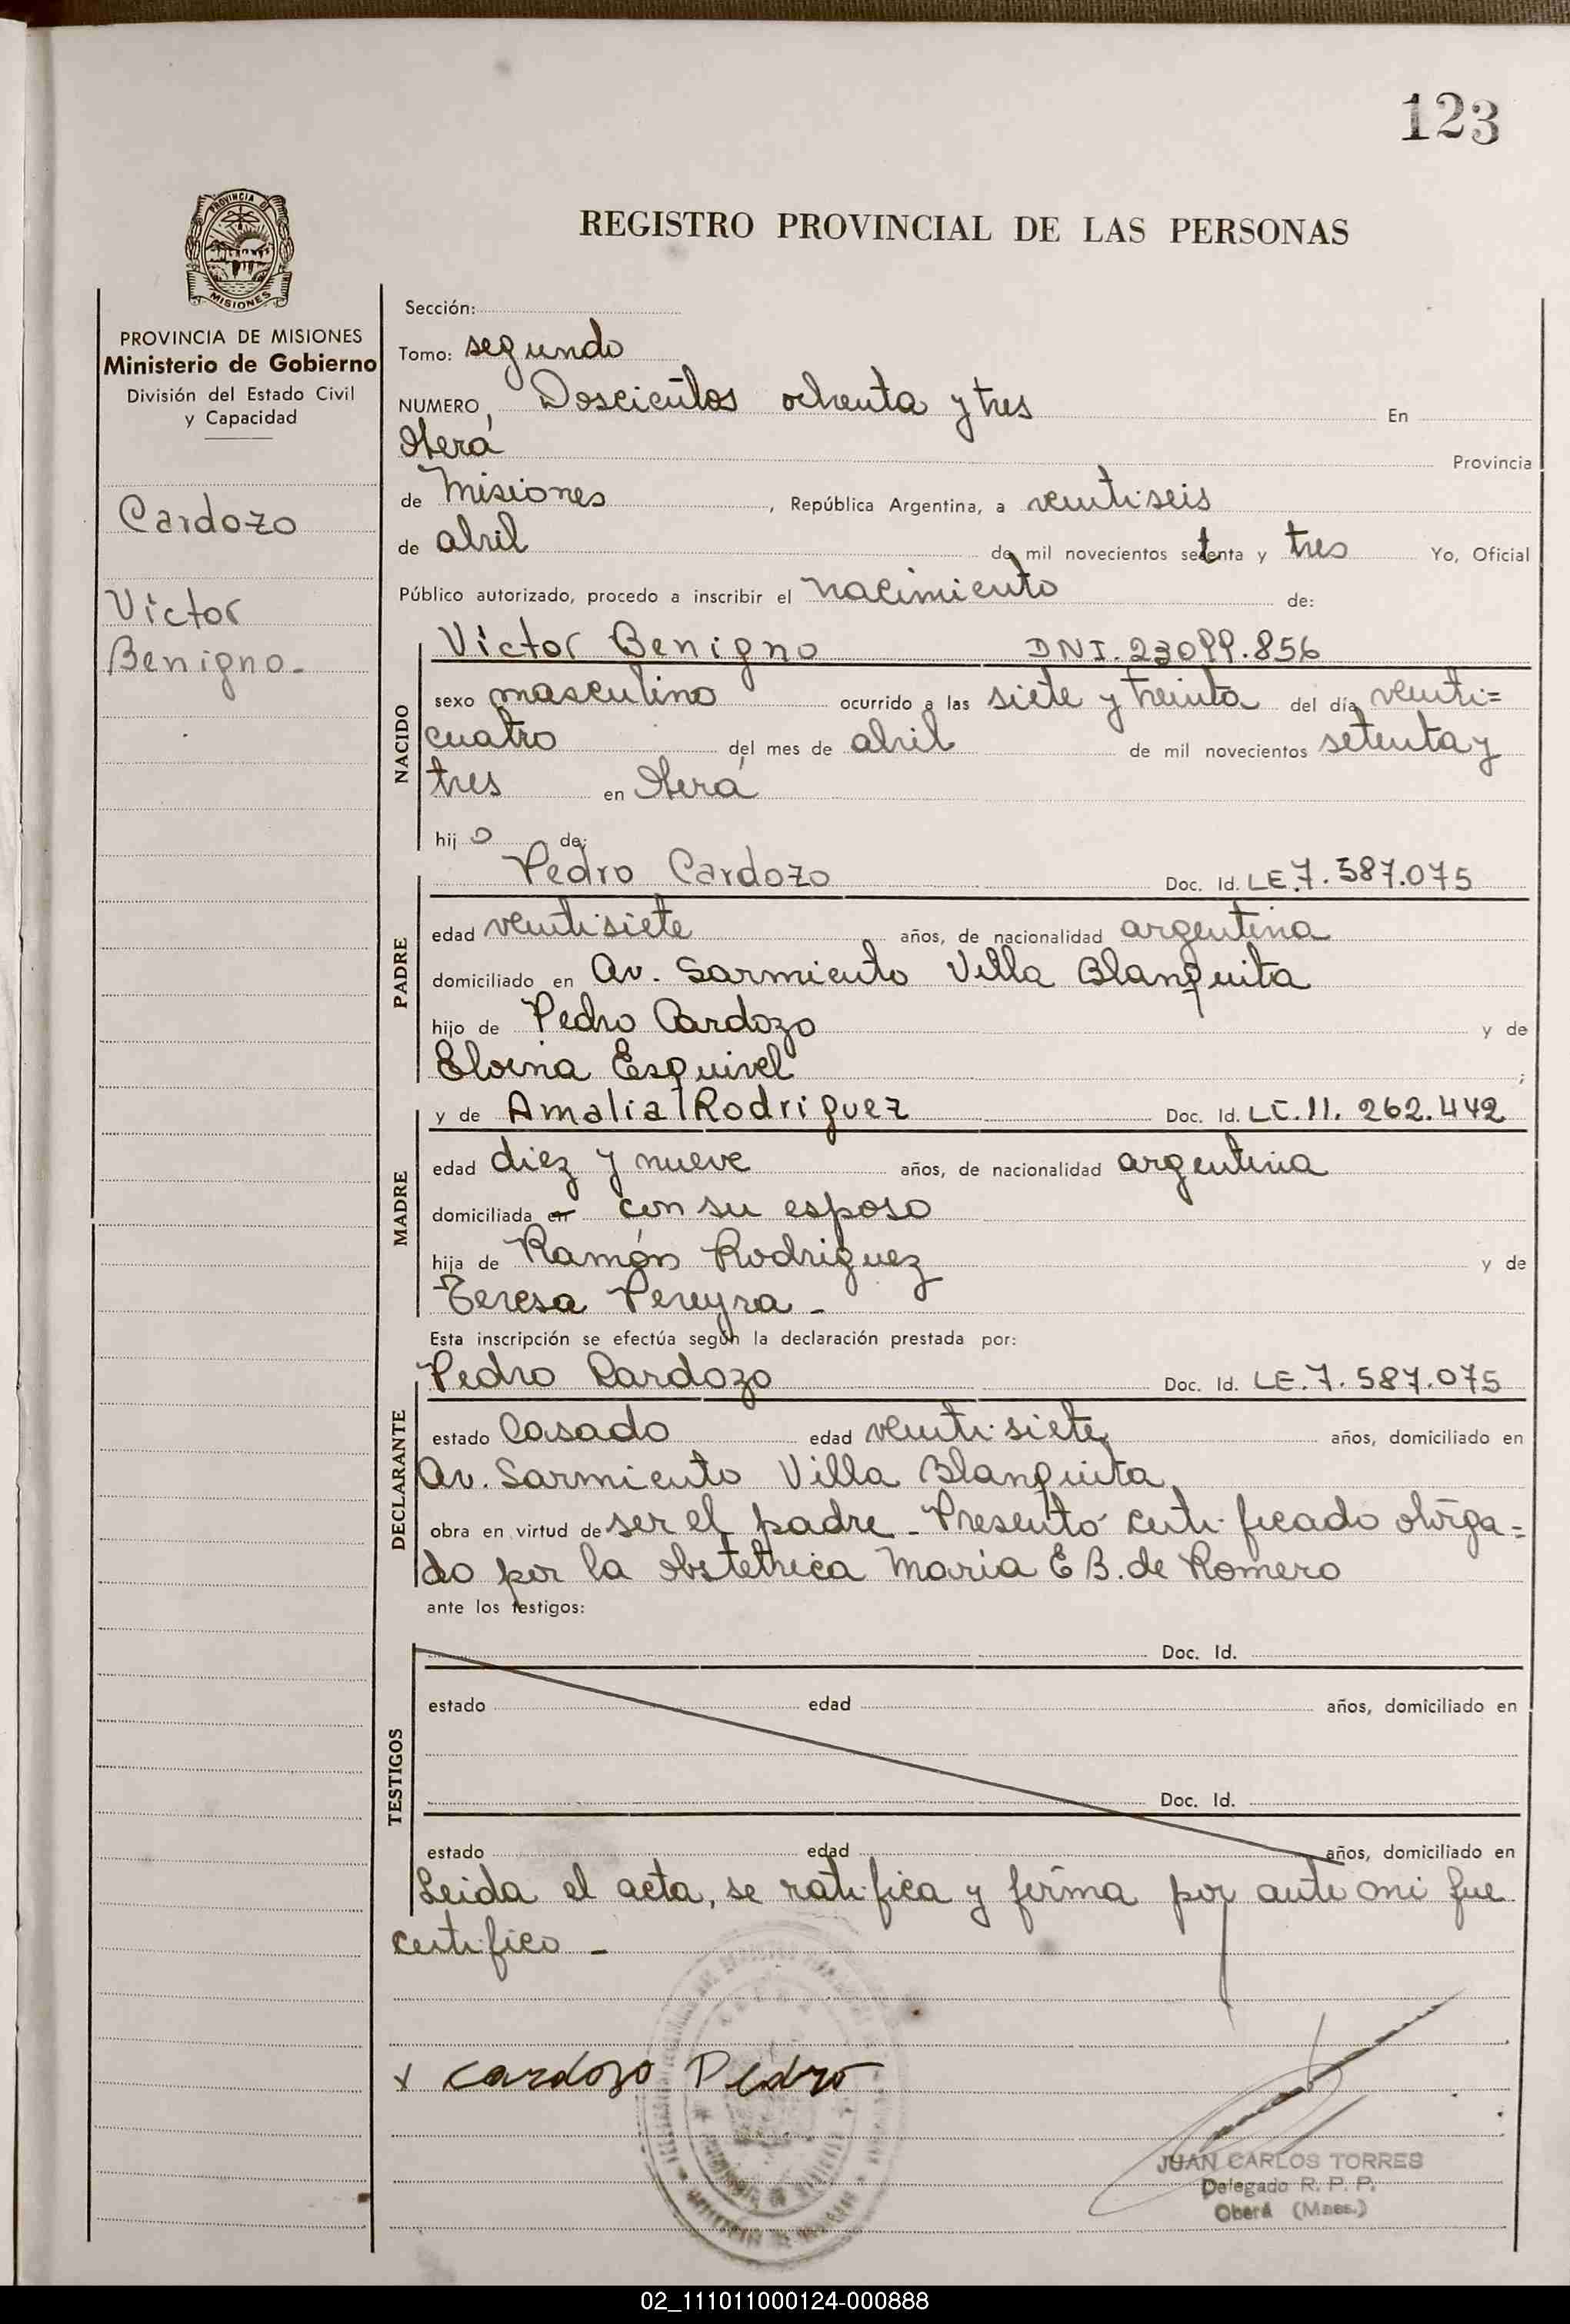 123
PROVINCIA DE
MISIONES
REGISTRO PROVINCIAL DE LAS PERSONAS
PROVINCIA DE MISIONES
Ministerio de Gobierno
División del Estado Civil
y Capacidad
Cardozo
Victor
Benigno.
Sección:
Tomo: segundo
NUMERO, Doscientos ochenta y tres En
Oberá Provincia
de Misiones, República Argentina, a veintiseis
de abril de mil novecientos setenta y tres Yo, Oficial
Público autorizado, procedo a inscribir el nacimiento de:
NACIDO
Victor Benigno DNI. 23099.856
sexo masculino ocurrido a las siete y treinta del día veinti=
cuatro del mes de abril de mil novecientos setenta y
tres en Oberá
hijo de:
PADRE
Pedro Cardozo Doc. Id. LE.7.587.075
edad veintisiete años, de nacionalidad argentina
domiciliado en Av. Sarmiento Villa Blanquita
hijo de Pedro Cardozo y de
Eloina Esquivel ;
MADRE
y de Amalia Rodriguez Doc. Id. LC.11.262.442
edad diez y nueve años, de nacionalidad argentina
domiciliada en con su esposo
hija de Ramón Rodriguez y de
Teresa Pereyra -
Esta inscripción se efectúa según la declaración prestada por:
DECLARANTE
Pedro Cardozo Doc. Id. LE.7.587.075
estado Casado edad veintisiete años, domiciliado en
Av. Sarmiento Villa Blanquita
obra en virtud de ser el padre - Presentó certificado otorga=
do por la obstetrica Maria E B. de Romero
ante los testigos:
TESTIGOS
Doc. Id.
estado edad años, domiciliado en
Doc. Id.
estado edad años, domiciliado en
Leida el acta, se ratifica y firma por ante mi que
certifico -
x Cardozo Pedro
JUAN CARLOS TORRES
Delegado R. P. P.
Oberá (Mnes.)
02_111011000124-000888